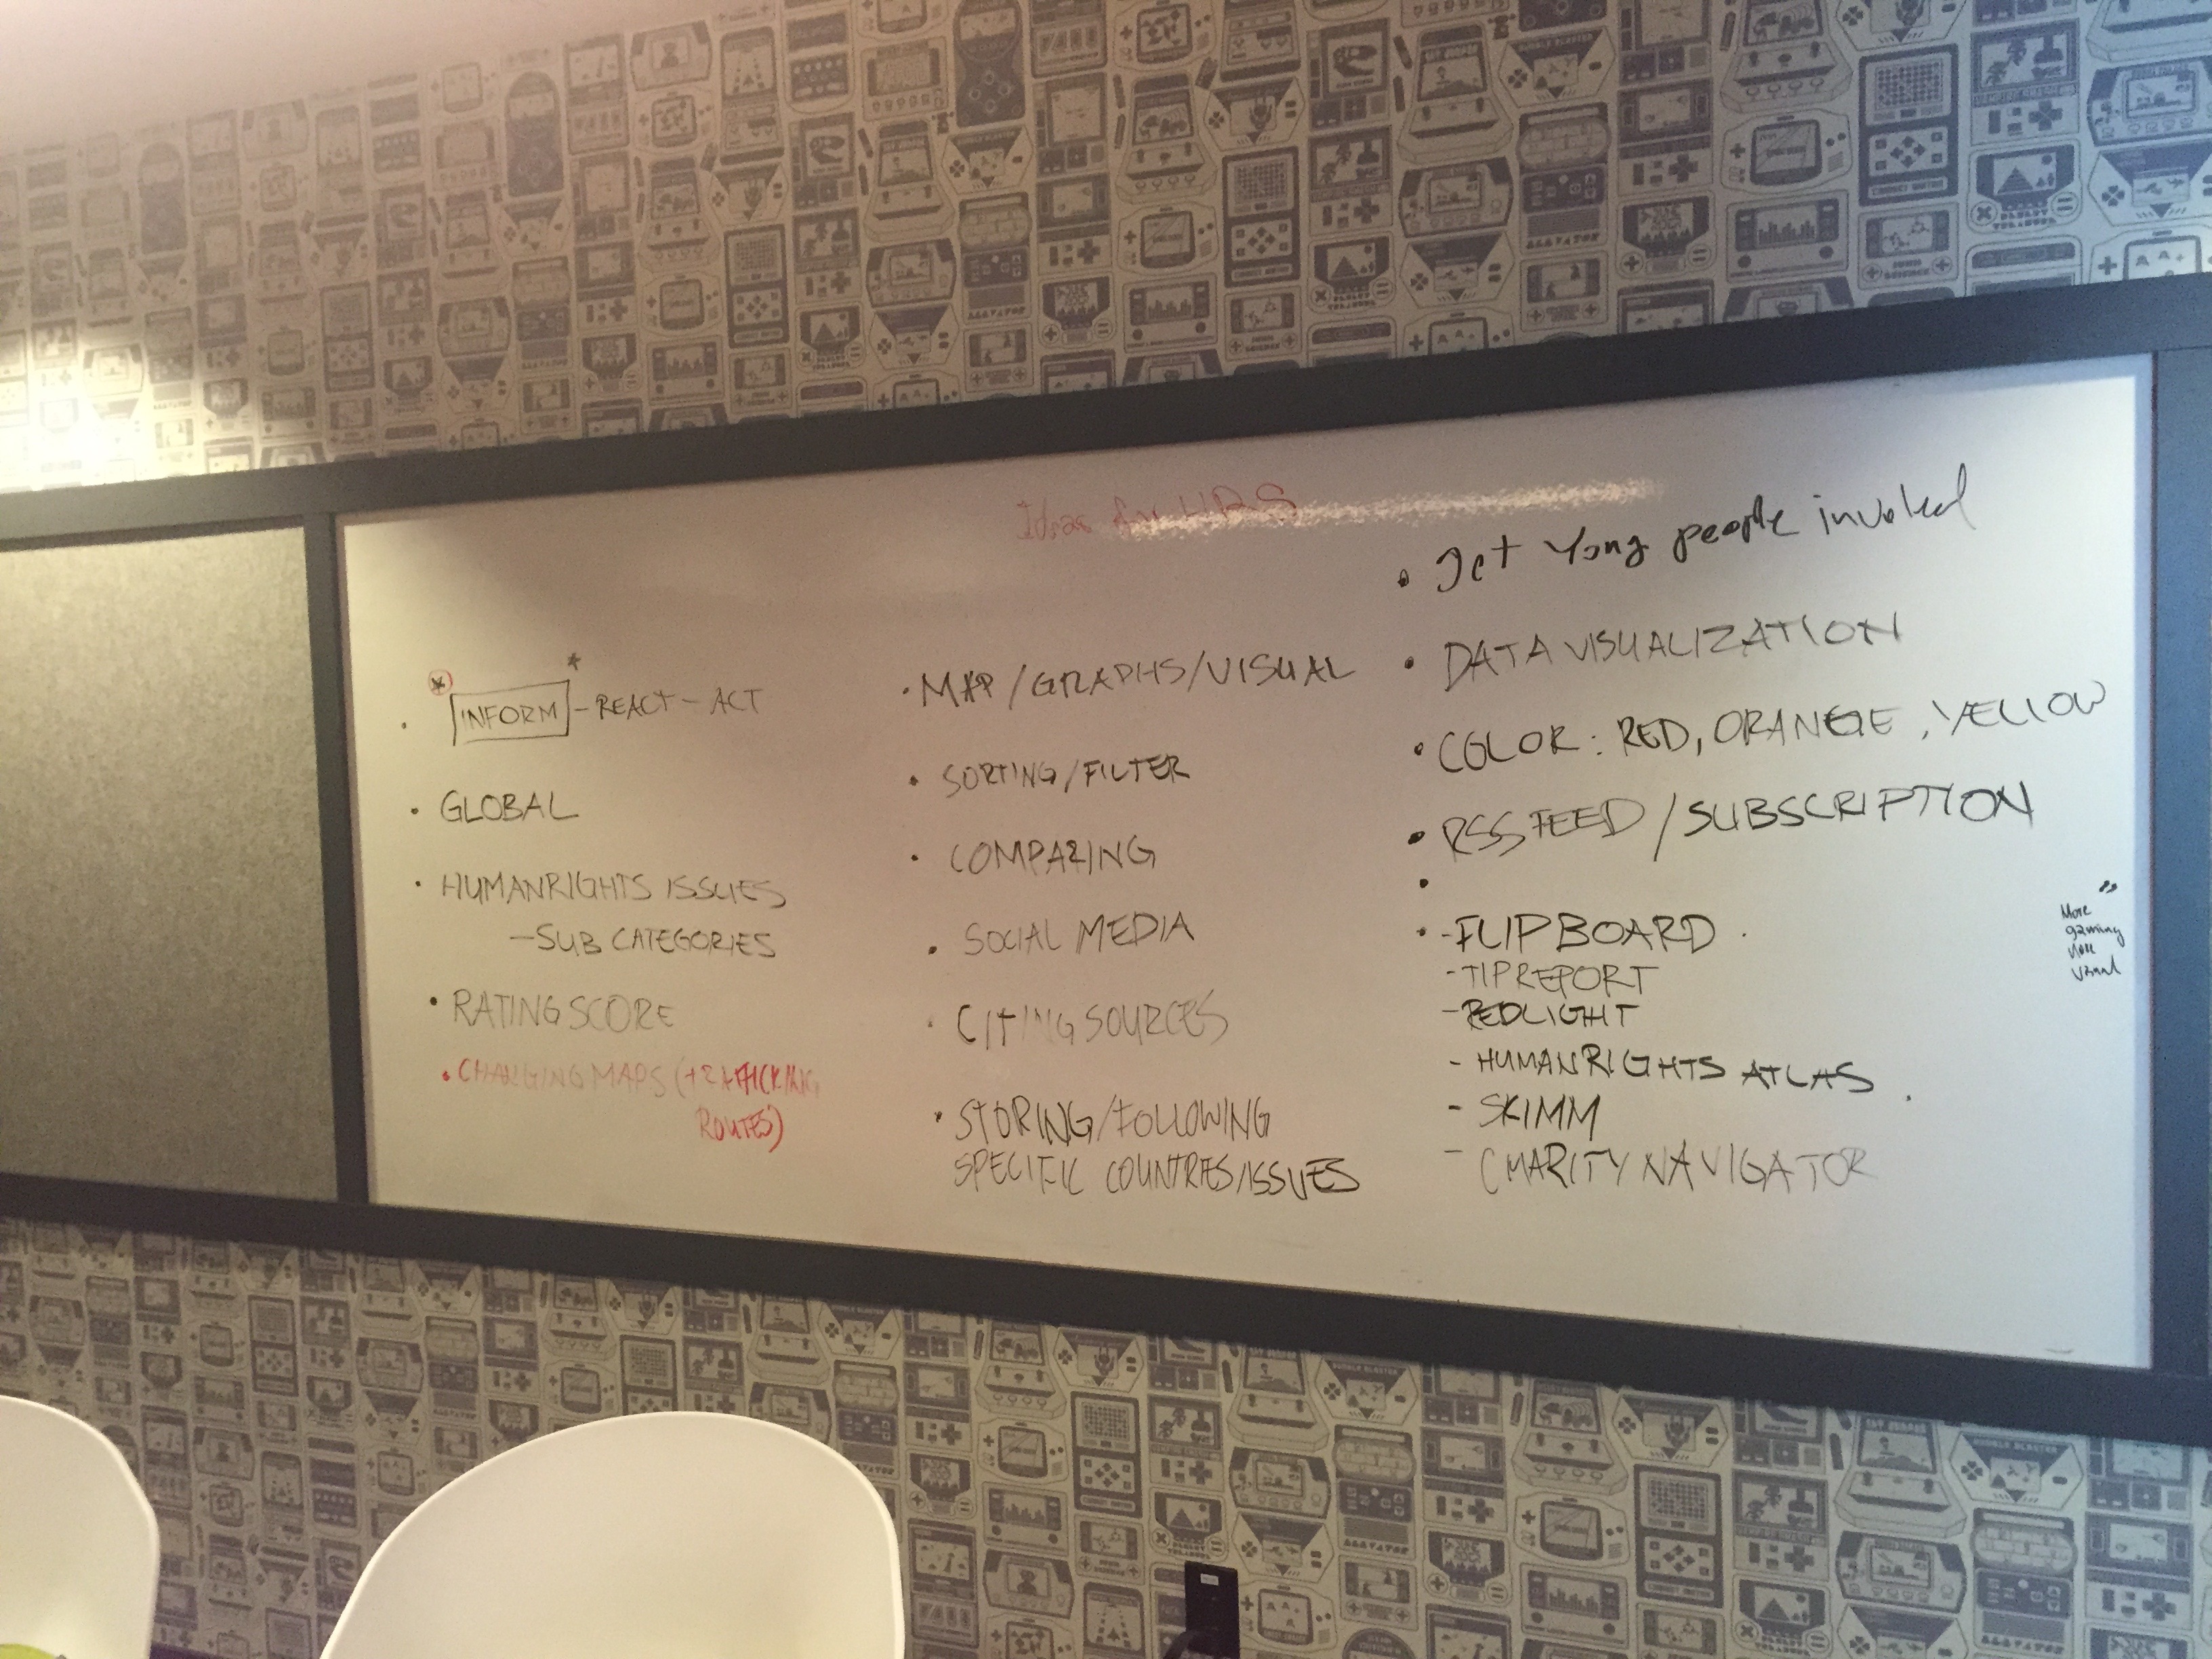 Ideas for HRS
* *
• INFORM - REACT - ACT
• GLOBAL
• HUMANRIGHTS ISSUES
- SUB CATEGORIES
• RATING SCORE
• CHANGING MAPS (TRAFFICKING
ROUTES)
• MAP / GRAPHS / VISUAL
• SORTING / FILTER
• COMPARING
• SOCIAL MEDIA
• CITING SOURCES
• STORING / FOLLOWING
SPECIFIC COUNTRES / ISSUES
• Get Yong people involed
• DATA VISUALIZATION
• COLOR: RED, ORANGE, YELLOW
• RSS FEED / SUBSCRIPTION
•
• - FLIPBOARD
- TIPREPORT
- REDLIGHT
- HUMANRIGHTS ATLAS
- SKIMM
- CHARITY NAVIGATOR
More
gaming
visual